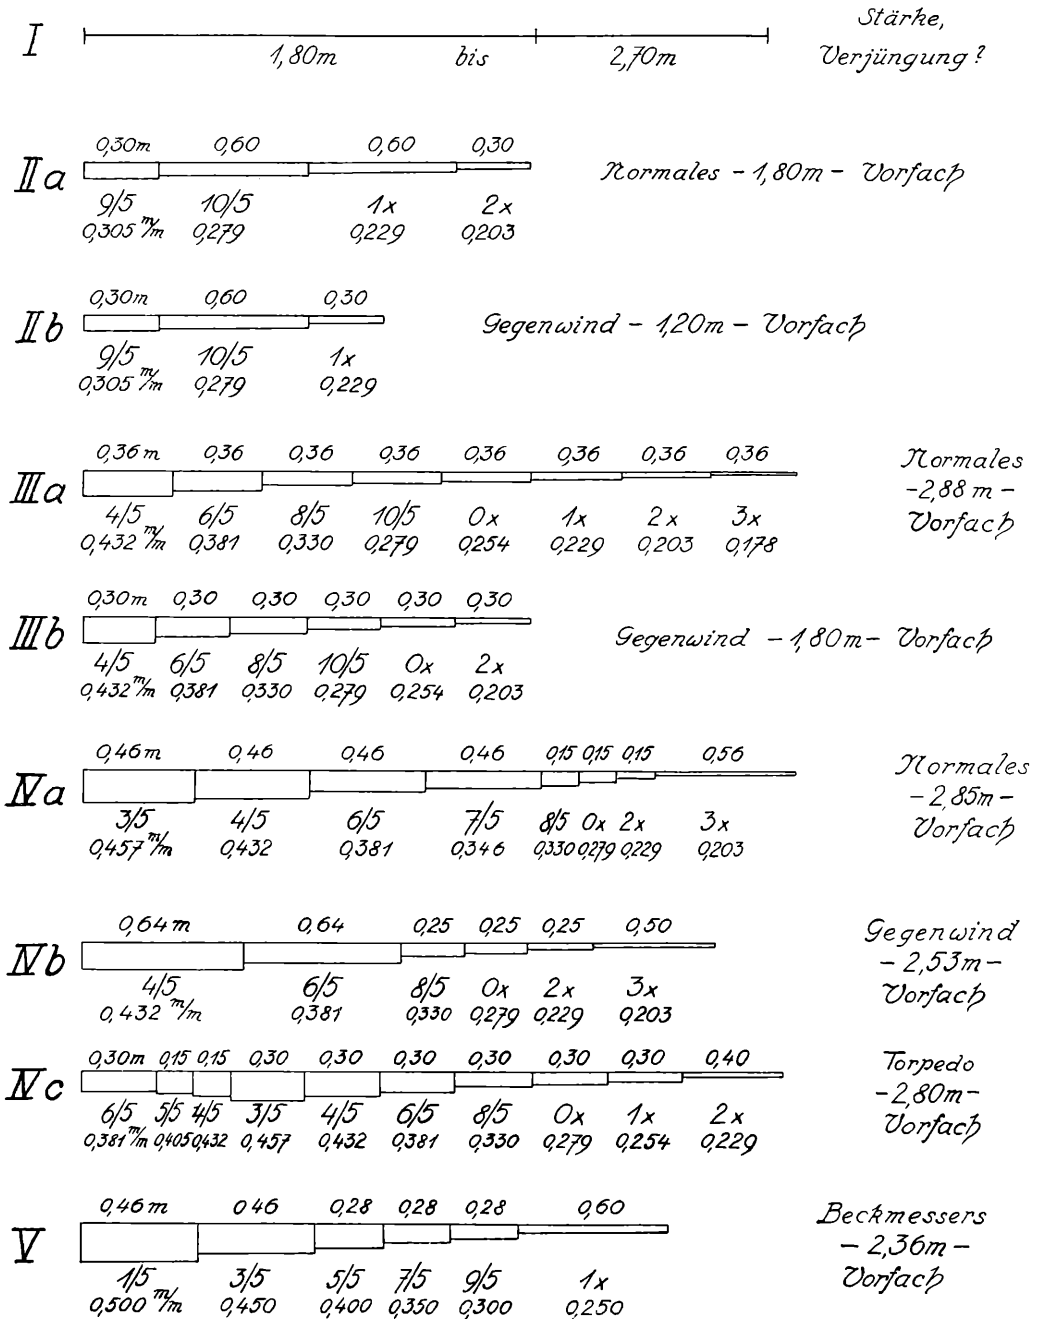 I
1,80m bis 2,70m
Stärke,
Verjüngung?
IIa
0,30m 0,60 0,60 0,30
9/5 10/5 1x 2x
0,305 m/m 0,279 0,229 0,203
Normales – 1,80m – Vorfach
IIb
0,30m 0,60 0,30
9/5 10/5 1x
0,305 m/m 0,279 0,229
Gegenwind – 1,20m – Vorfach
IIIa
0,36m 0,36 0,36 0,36 0,36 0,36 0,36 0,36
4/5 6/5 8/5 10/5 0x 1x 2x 3x
0,432 m/m 0,381 0,330 0,279 0,254 0,229 0,203 0,178
Normales
–2,88m–
Vorfach
IIIb
0,30m 0,30 0,30 0,30 0,30 0,30
4/5 6/5 8/5 10/5 0x 2x
0,432 m/m 0,381 0,330 0,279 0,254 0,203
Gegenwind –1,80m– Vorfach
IVa
0,46m 0,46 0,46 0,46 0,15 0,15 0,15 0,56
3/5 4/5 6/5 7/5 8/5 0x 2x 3x
0,457 m/m 0,432 0,381 0,346 0,330 0,279 0,229 0,203
Normales
–2,85m–
Vorfach
IVb
0,64m 0,64 0,25 0,25 0,25 0,50
4/5 6/5 8/5 0x 2x 3x
0,432 m/m 0,381 0,330 0,279 0,229 0,203
Gegenwind
– 2,53m –
Vorfach
IVc
0,30m 0,15 0,15 0,30 0,30 0,30 0,30 0,30 0,30 0,40
6/5 5/5 4/5 3/5 4/5 6/5 8/5 0x 1x 2x
0,381 m/m 0,405 0,432 0,457 0,432 0,381 0,330 0,279 0,254 0,229
Torpedo
–2,80m–
Vorfach
V
0,46m 0 46 0,28 0,28 0,28 0,60
1/5 3/5 5/5 7/5 9/5 1x
0,500 m/m 0,450 0,400 0,350 0,300 0,250
Beckmessers
– 2,36m –
Vorfach